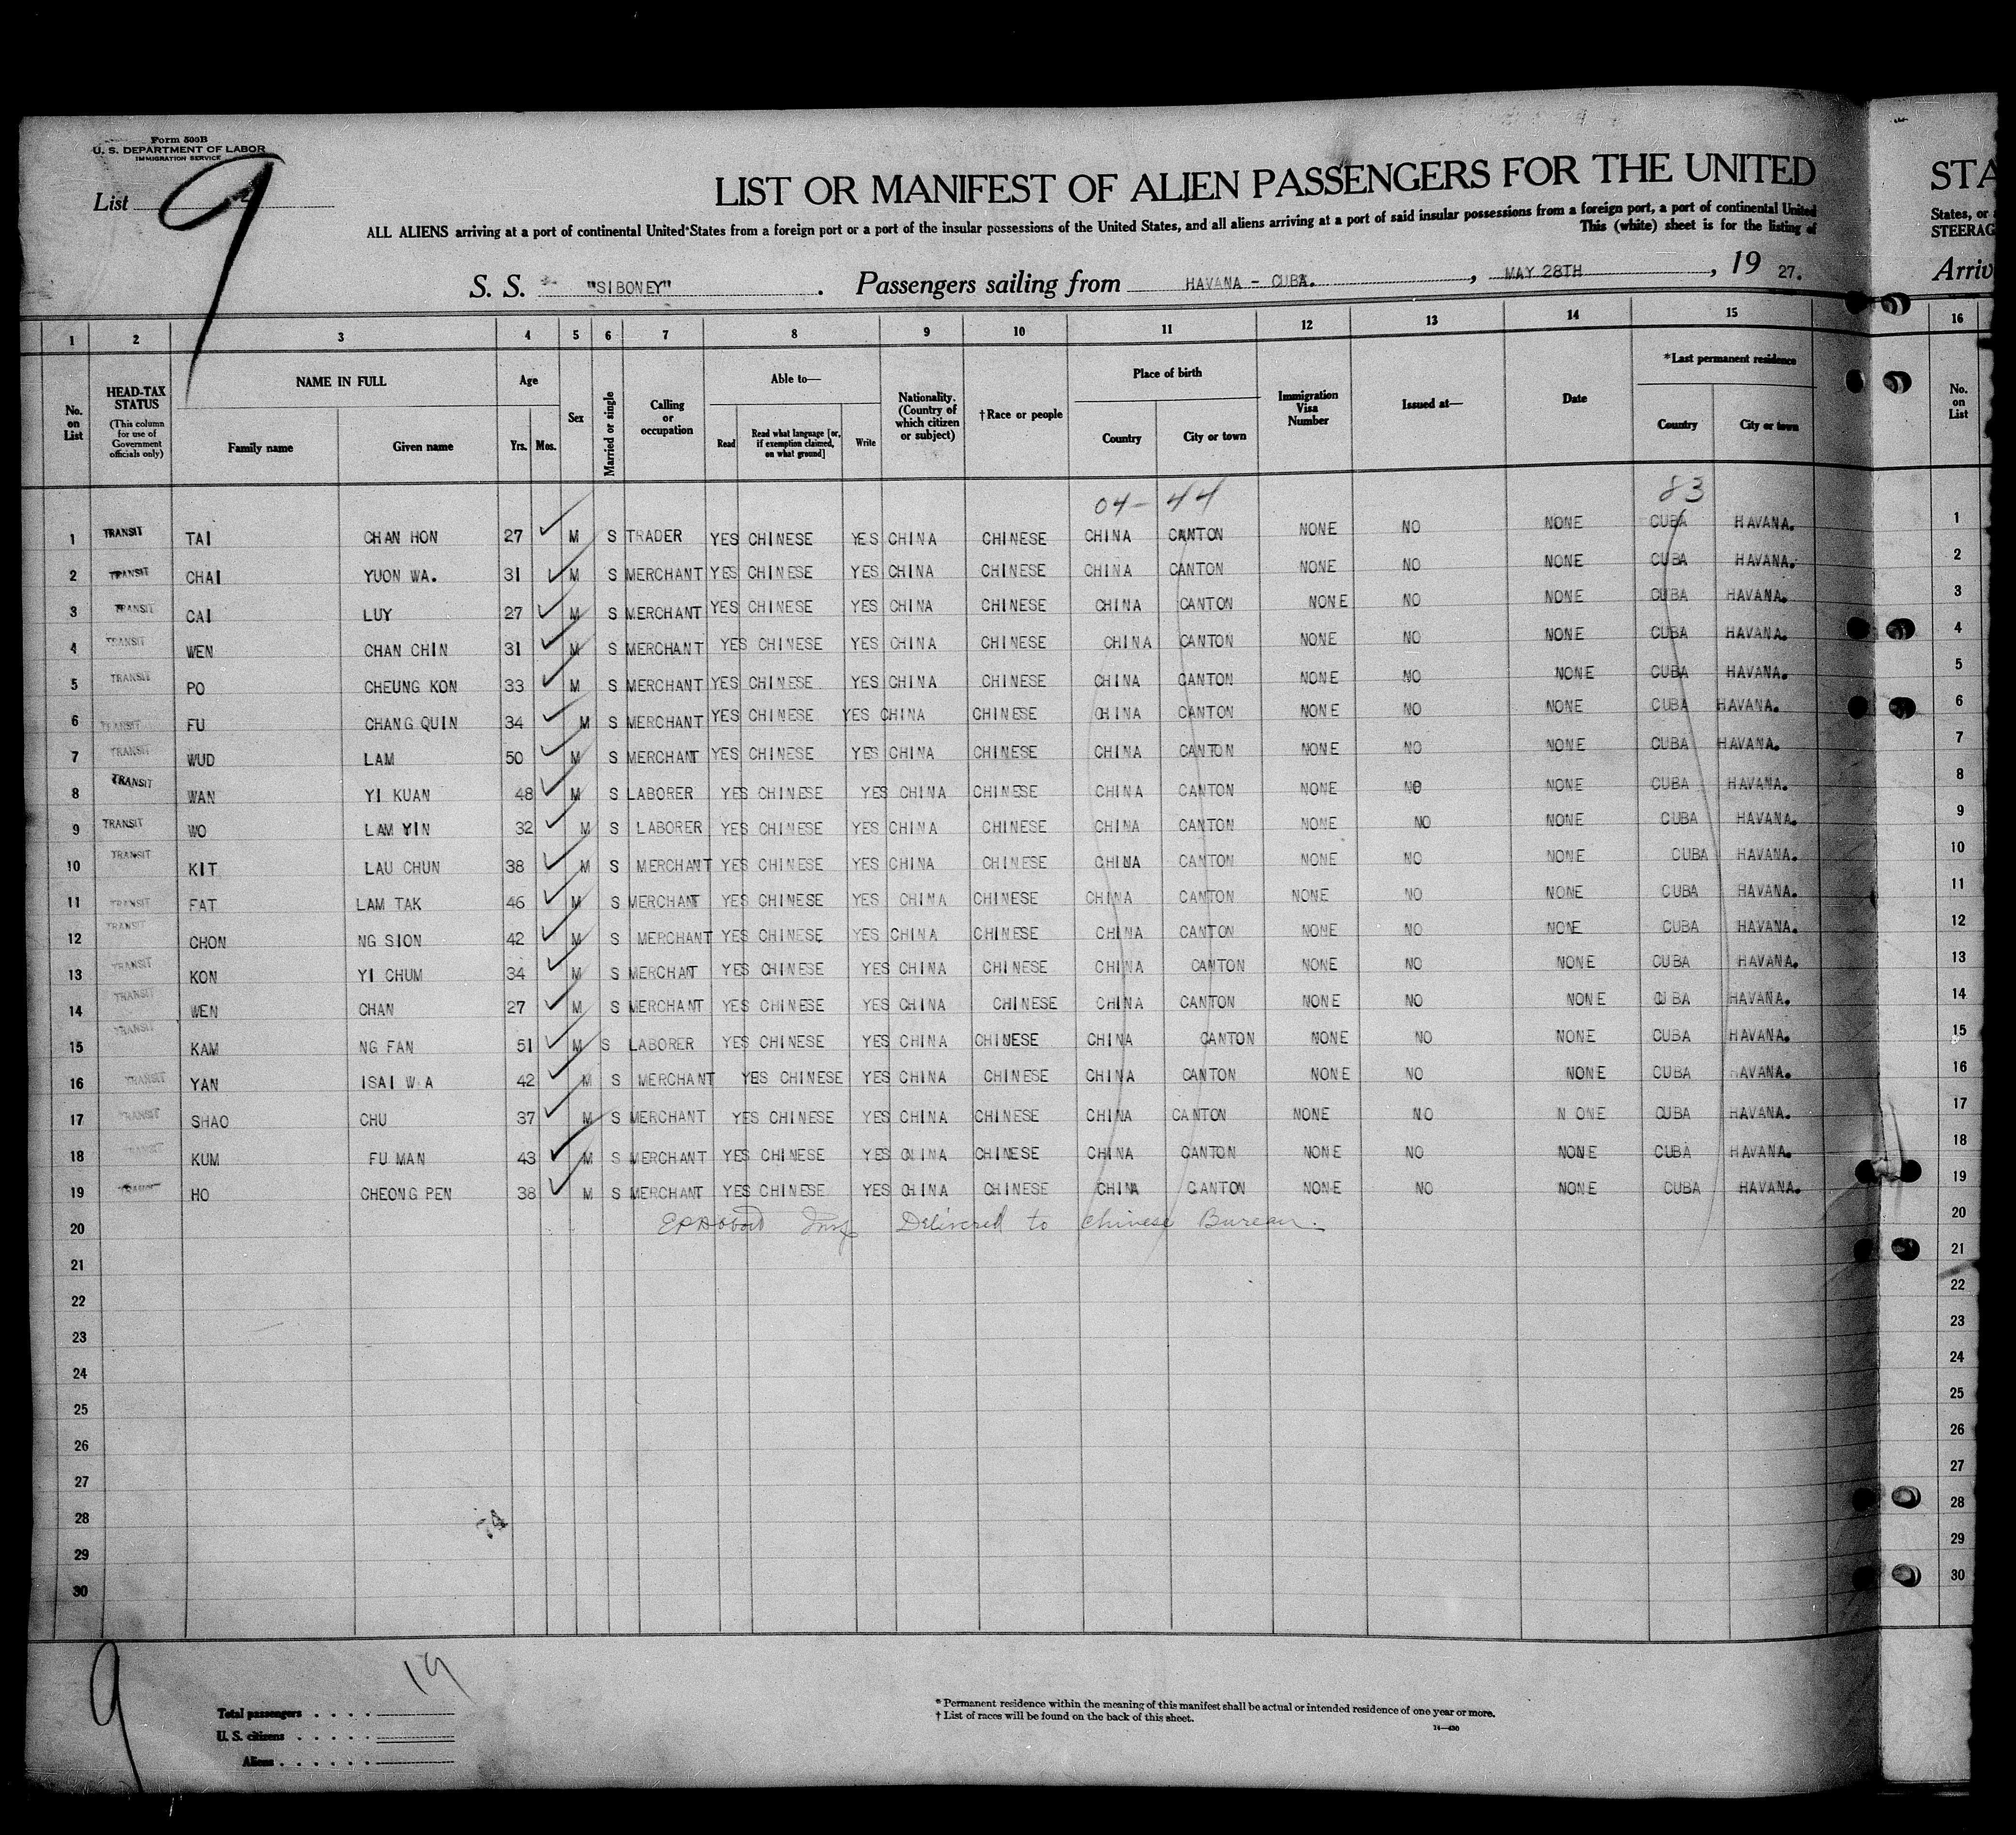 Form 500B
U. S. DEPARTMENT OF LABOR
IMMIGRATION SERVICE
List 9
LIST OR MANIFEST OF ALIEN PASSENGERS FOR THE UNITED
ALL ALIENS arriving at a port of continental United States from a foreign port or a port of the insular possessions of the United States, and all aliens arriving at a port of said insular possessions from a foreign port, a port of continental United
This (white) sheet is for the listing of
S. S. "SIBONEY" . Passengers sailing from HAVANA - CUBA. , MAY 28TH , 19 27.
STA
States, or
STEERAG
Arriv
1 2 3 4 5 6 7 8 9 10 11 12 13 14 15 16
No. on List
HEAD-TAX STATUS
(This column for use of Government officials only)
NAME IN FULL
Family name Given name
Age
Yrs. Mos.
Sex
Married or single
Calling or occupation
Able to—
Read Read what language [or, if exemption claimed, on what ground] Write
Nationality. (Country of which citizen or subject)
†Race or people
Place of birth
Country City or town
Immigration Visa Number
Issued at—
Date
*Last permanent residence
Country City or town
No. on List
04- 44 83
1 TRANSIT TAI CHAN HON 27 M S TRADER YES CHINESE YES CHINA CHINESE CHINA CANTON NONE NO NONE CUBA HAVANA. 1
2 TRANSIT CHAI YUON WA. 31 M S MERCHANT YES CHINESE YES CHINA CHINESE CHINA CANTON NONE NO NONE CUBA HAVANA. 2
3 TRANSIT CAI LUY 27 M S MERCHANT YES CHINESE YES CHINA CHINESE CHINA CANTON NONE NO NONE CUBA HAVANA. 3
4 TRANSIT WEN CHAN CHIN 31 M S MERCHANT YES CHINESE YES CHINA CHINESE CHINA CANTON NONE NO NONE CUBA HAVANA. 4
5 TRANSIT PO CHEUNG KON 33 M S MERCHANT YES CHINESE YES CHINA CHINESE CHINA CANTON NONE NO NONE CUBA HAVANA. 5
6 TRANSIT FU CHANG QUIN 34 M S MERCHANT YES CHINESE YES CHINA CHINESE CHINA CANTON NONE NO NONE CUBA HAVANA. 6
7 TRANSIT WUD LAM 50 M S MERCHANT YES CHINESE YES CHINA CHINESE CHINA CANTON NONE NO NONE CUBA HAVANA. 7
8 TRANSIT WAN YI KUAN 48 M S LABORER YES CHINESE YES CHINA CHINESE CHINA CANTON NONE NO NONE CUBA HAVANA. 8
9 TRANSIT WO LAM YIN 32 M S LABORER YES CHINESE YES CHINA CHINESE CHINA CANTON NONE NO NONE CUBA HAVANA. 9
10 TRANSIT KIT LAU CHUN 38 M S MERCHANT YES CHINESE YES CHINA CHINESE CHINA CANTON NONE NO NONE CUBA HAVANA. 10
11 TRANSIT FAT LAM TAK 46 M S MERCHANT YES CHINESE YES CHINA CHINESE CHINA CANTON NONE NO NONE CUBA HAVANA. 11
12 TRANSIT CHON NG SION 42 M S MERCHANT YES CHINESE YES CHINA CHINESE CHINA CANTON NONE NO NONE CUBA HAVANA. 12
13 TRANSIT KON YI CHUM 34 M S MERCHANT YES CHINESE YES CHINA CHINESE CHINA CANTON NONE NO NONE CUBA HAVANA. 13
14 TRANSIT WEN CHAN 27 M S MERCHANT YES CHINESE YES CHINA CHINESE CHINA CANTON NONE NO NONE CUBA HAVANA. 14
15 TRANSIT KAM NG FAN 51 M S LABORER YES CHINESE YES CHINA CHINESE CHINA CANTON NONE NO NONE CUBA HAVANA. 15
16 TRANSIT YAN ISAI W A 42 M S MERCHANT YES CHINESE YES CHINA CHINESE CHINA CANTON NONE NO NONE CUBA HAVANA. 16
17 TRANSIT SHAO CHU 37 M S MERCHANT YES CHINESE YES CHINA CHINESE CHINA CANTON NONE NO N ONE CUBA HAVANA. 17
18 TRANSIT KUM FU MAN 43 M S MERCHANT YES CHINESE YES CHINA CHINESE CHINA CANTON NONE NO NONE CUBA HAVANA. 18
19 TRANSIT HO CHEONG PEN 38 M S MERCHANT YES CHINESE YES CHINA CHINESE CHINA CANTON NONE NO NONE CUBA HAVANA. 19
20 Delivered to Chinese Bureau. 20
21 21
22 22
23 23
24 24
25 25
26 26
27 27
28 28
29 29
30 30
9
19
Total passengers
U. S. citizens
Aliens
* Permanent residence within the meaning of this manifest shall be actual or intended residence of one year or more.
† List of races will be found on the back of this sheet.
14—430